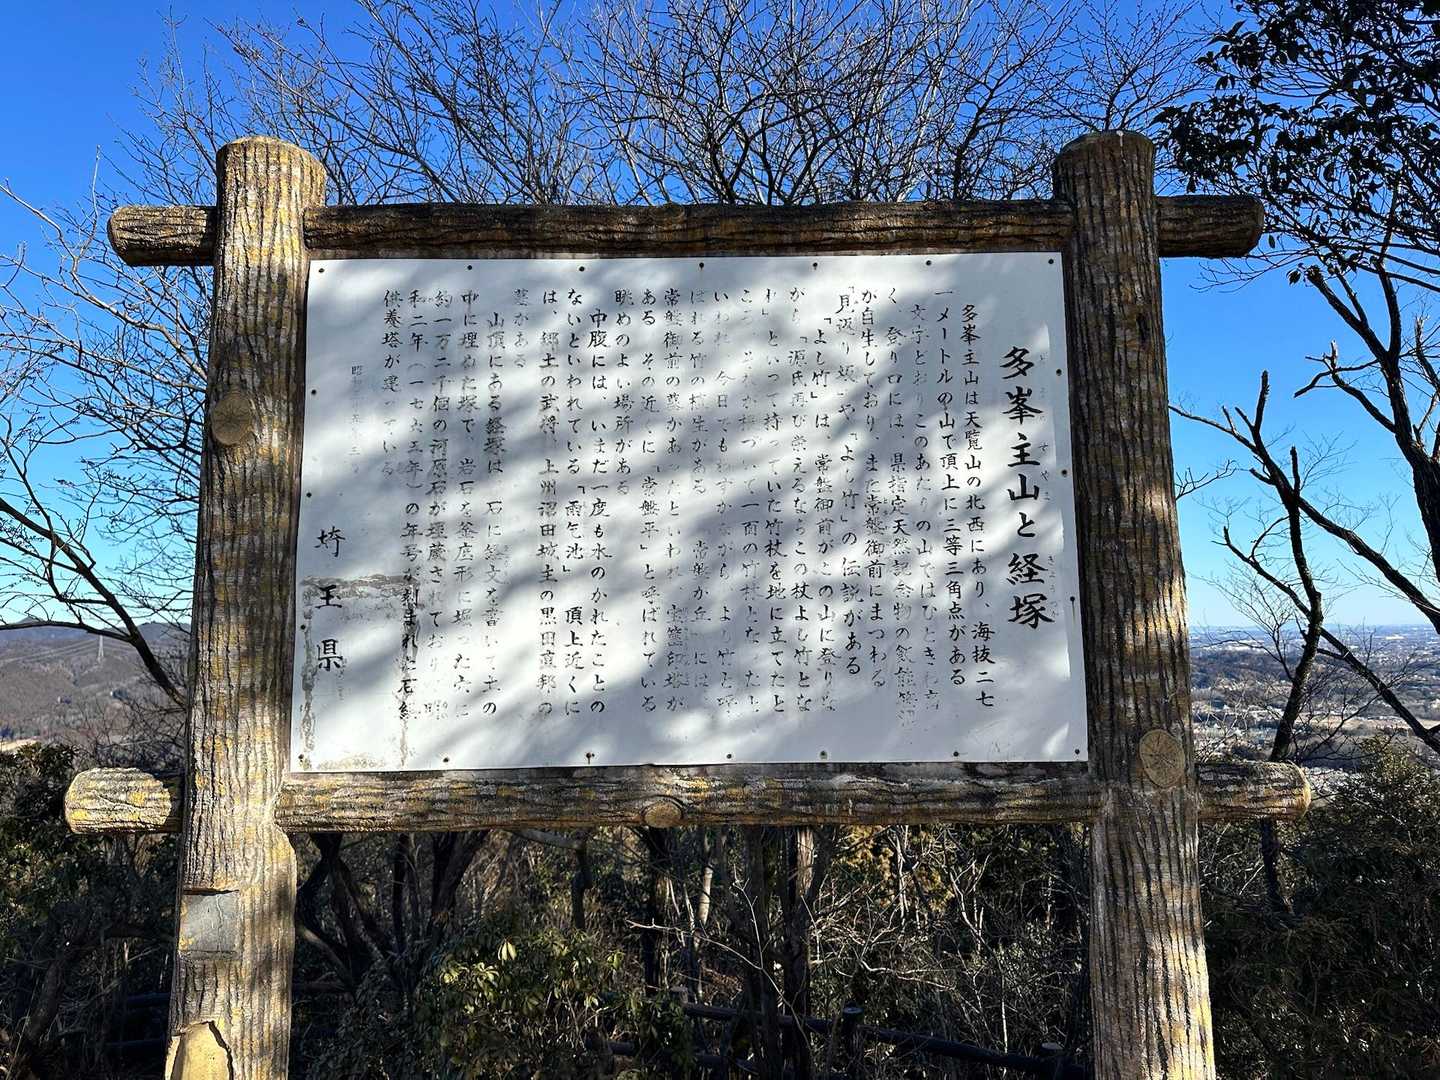 多峯主山と経塚
とうのすやま
きょうづか
多峯主山は天覧山の北西にあり、海抜二七
一メートルの山で頂上に三等三角点がある
文字どおりこのあたりの山ではひときわ高
く、登り口には、県指定天然記念物の飯能笹
が自生しており、また常盤御前にまつわる
「見返り坂」や「よし竹」の伝説がある
「よし竹」は、常盤御前がこの山に登りな
がら「源氏再び栄えるならこの杖よし竹とな
れ」といって持っていた竹杖を地に立てたと
ころ、それが根づいて一面の竹林となったと
いわれ、今日でもわずかながら、より竹と呼
ばれる竹の植生がある 常盤が丘には、
常盤御前の墓があったといわれ、宝篋印塔が
ある その近くに「常盤平」と呼ばれている
眺めのよい場所がある
中腹には、いまだ一度も水のかれたことの
ないといわれている「雨乞池」 頂上近くに
は、郷土の武将、上州沼田城主の黒田直邦の
墓がある
山頂にある経塚は、石に経文を書いて土の
中に埋めた塚で、岩石を釜底形に掘った穴に
約一万二千個の河原石が埋蔵されており、明
和二年(一七六五年)の年号が刻まれた石経
供養塔が建っている
昭和
埼玉県